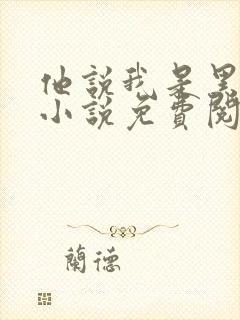 他說我是黑
小說免費閱
蘭德